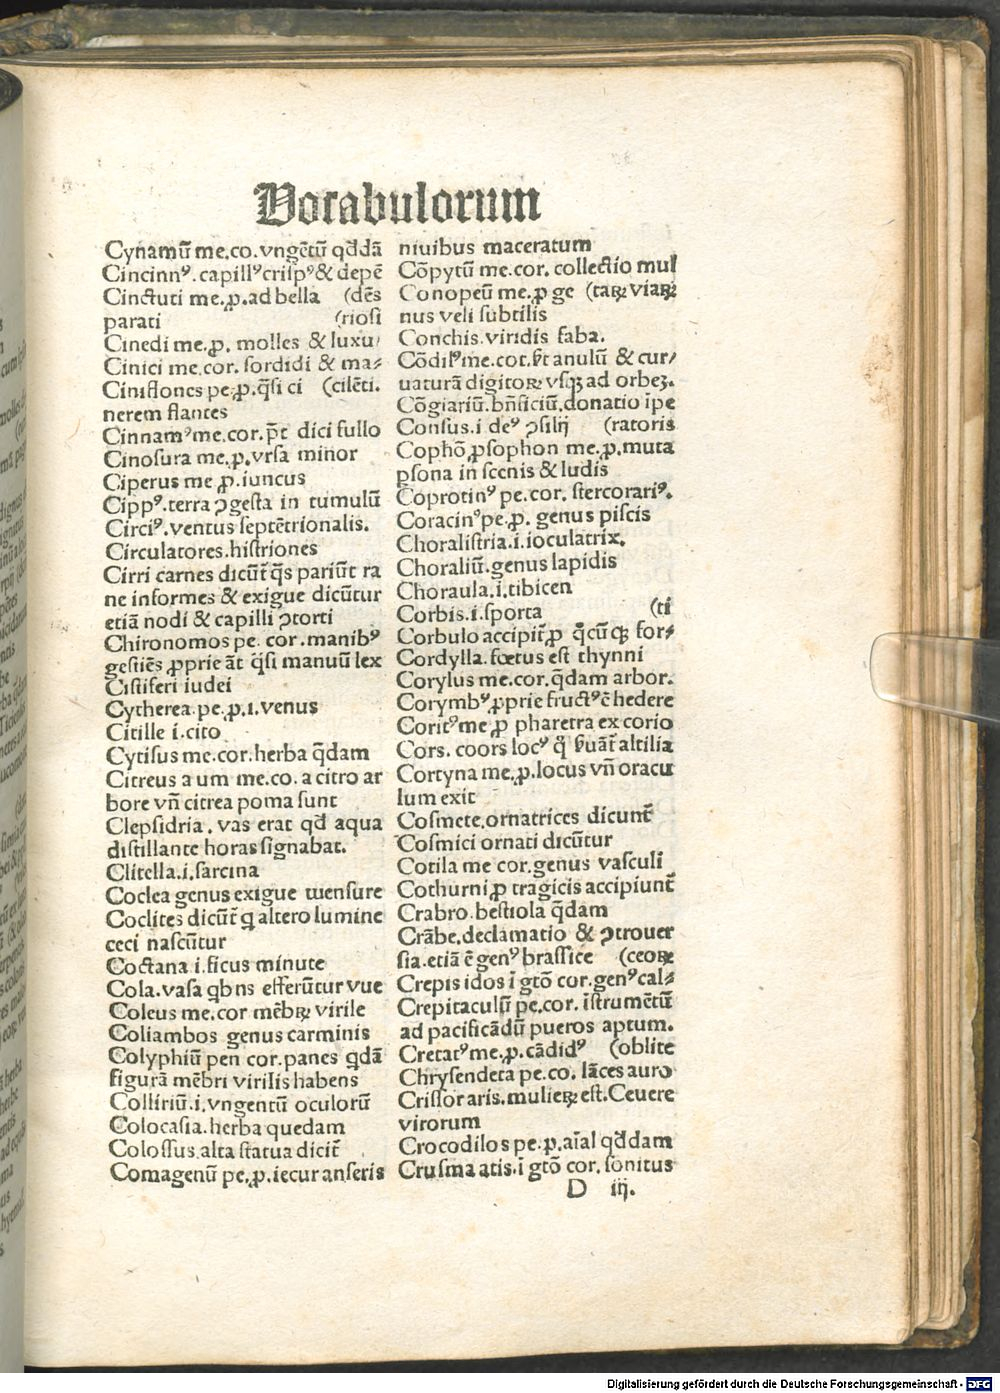 Vocabulorum
Cynamū me.co.vngētū qd̄dā
Cincinnꝰ.capillꝰcrispꝰ& depē
Cinctuti me.ꝓ.ad bella (dēs
parati (riosi
Cinedi me.ꝓ. molles & luxu/
Cinici me.cor. sordidi & ma⸗
Ciniflones pe.ꝓ.q̄si ci (cilēti.
nerem flantes
Cinnamꝰme.cor.p̄t dici fullo
Cinosura me.ꝓ.vrsa minor
Ciperus me ꝓ.iuncus
Cippꝰ.terra ꝯgesta in tumulū
Circiꝰ.ventus septētrionalis.
Circulatores.histriones
Cirri carnes dicūt̄ q̄s pariūt ra
ne informes & exigue dicūtur
etiā nodi & capilli ꝯtorti
Chironomos pe. cor.manibꝰ
gestiēs ꝓprie āt q̄si manuū lex
Cistiferi iudei
Cytherea.pe.ꝓ.i.venus
Citille i.cito
Cytisus me.cor.herba q̄dam
Citreus a um me.co.a citro ar
bore vn̄ citrea poma sunt
Clepsidria. vas erat qd̄ aqua
distillante horas signabat.
Clitella.i.sarcina
Coclea genus exigue mensure
Coclites dicūt̄ q altero lumine
ceci nascūtur
Coctana i.ficus minute
Cola.vasa qbns efferūtur vue
Coleus me.cor mēbꝝ virile
Coliambos genus carminis
Colyphiū pen cor.panes qdā
figurā mēbri virilis habens
Collīriū.i.vngentū oculorū
Colocasia.herba quedam
Colossus.alta statua dicit̄
Comagenū pe.ꝓ.iecur anseris
niuibus maceratum
Cōpytū me.cor. collectio mul
Conopeū me.ꝓ ge (taꝝ viaꝝ
nus veli subtilis
Conchis.viridis faba.
Cōdilꝰme.cor.v̄t anulū & cur/
uaturā digitoꝝ vsqꝫ ad orbeꝫ.
Cōgiariū.bn̄ficiū.donatio īpe
Consus.i deꝰ ꝯsilij (ratoris
Cophō.ꝓsophon me.ꝓ.muta
ꝑsona in scenis & ludis
Coprotinꝰ pe.cor. stercorariꝰ.
Coracinꝰpe.ꝓ. genus piscis
Choralistria.i.ioculatrix.
Choraliū.genus lapidis
Choraula.i.tibicen
Corbis.i.sporta (ti
Corbulo accipit̄ ꝓ q̄cūqꝫ for⸗
Cordylla.fœtus est thynni
Corylus me.cor.q̄dam arbor.
Corymbꝰ.ꝓprie fructꝰē hedere
Coritꝰme.ꝓ pharetra ex corio
Cors. coors locꝰ q̄ ẜuāt̄ altilia
Cortyna me.ꝓ.locus vn̄ oracu
lum exit
Cosmete.ornatrices dicunt̄
Cosmici ornati dicūtur
Cotila me cor.genus vasculi
Cothurni ꝓ tragicis accipiunt̄
Crabro.bestiola q̄dam
Crābe.declamatio & ꝯtrouer
sia.etiā ē genꝰ brassice (ceoꝝ
Crepis idos ī gtō cor.genꝰcal⸗
Crepitaculū pe.cor. īstrumētū
ad pacificādū pueros aptum.
Cretatꝰme.ꝓ.cādidꝰ (oblite
Chrysendeta pe.co. lāces auro
Crissor aris.mulieꝝ est.Ceuere
virorum
Crocodilos pe.ꝓ.aīal qd̄dam
Crusma atis.ī gtō cor. sonitus
D iij.
Digitalisierung gefördert durch die Deutsche Forschungsgemeinschaft - DFG